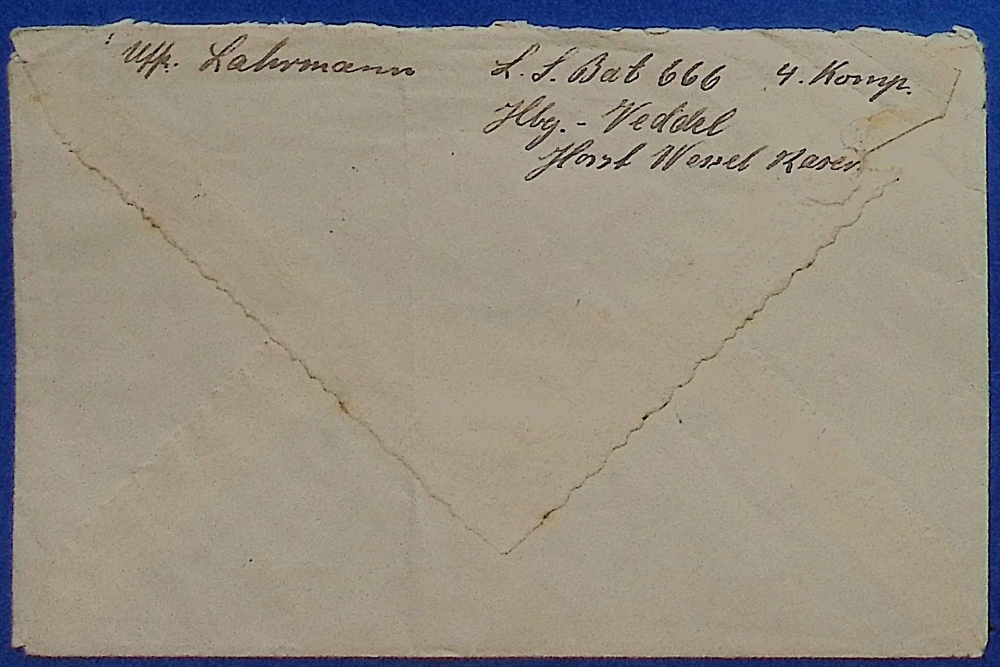 Uffz. Lahrmann L. S. Bat 666 4. Komp.
Hbg. - Veddel
Horst Wessel Kasern